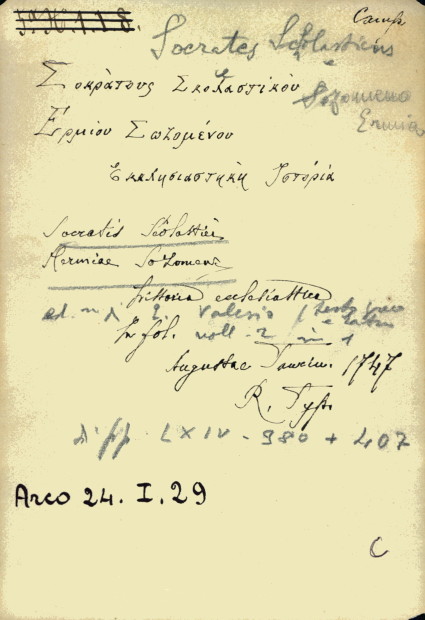 Camp
Socrates Scholasticus
Σοκράτους Σχολαστικοῦ
Sozomeno
Ermia
Ἑρμίου Σωζομένου
Ἐκκλησιαστικὴ Ἱστορία
Socratis Scholastici
Hermiae Sozomeni
historia ecclesiastica
ed. E. Valesio (testo greco
e latin
In fol. voll. 2 in 1
Augustae Taurin. 1747
R. Typ.
di pp. LXIV - 980 + 407
Arco 24. I. 29
C